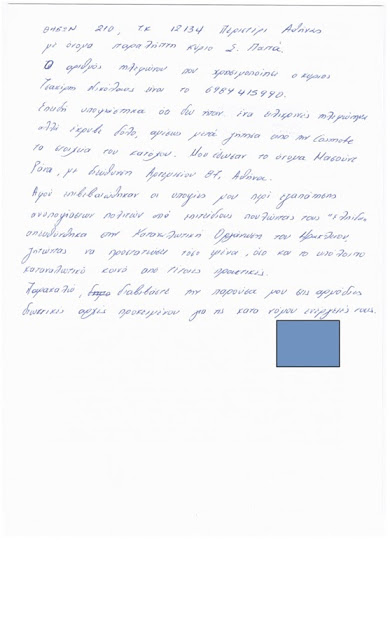 Θηβών 210, ΤΚ 12134 Περιστέρι Αθήνας
με όνομα παραλήπτη κύριο Σ. Παππά.
Ο αριθμός τηλεφώνου που χρησιμοποιήσε ο κύριος
Τσακίρης Νικόλαος είναι το 6987415990.
Επειδή υποψιάστηκα ότι δεν ήταν ένα ειλικρινές τηλεφώνημα
αλλά έκρυβε δόλο, αμέσως μετά ζήτησα από την Cosmote
τα στοιχεία του κατόχου. Μου έδωσαν το όνομα Μασούντ
Ράνα, με διεύθυνση 87, Αθήνα.
Αφού επιβεβαιώθηκαν οι υποψίες μου περί εξαπάτησης
ανυποψίαστων πολιτών από επιτήδειους πουλώντας τους "ελπίδα"
απευθύνθηκα στην Καταναλωτική Οργάνωση του Ηρακλείου,
ζητώντας να προστατεύσει τόσο εμένα, όσο και το υπόλοιπο
καταναλωτικό κοινό από τέτοιες πρακτικές.
Παρακαλώ, διαβιβάστε την παρούσα μου στις αρμόδιες
διωκτικές αρχές προκειμένου για τις κατά νόμου ενέργειές τους.